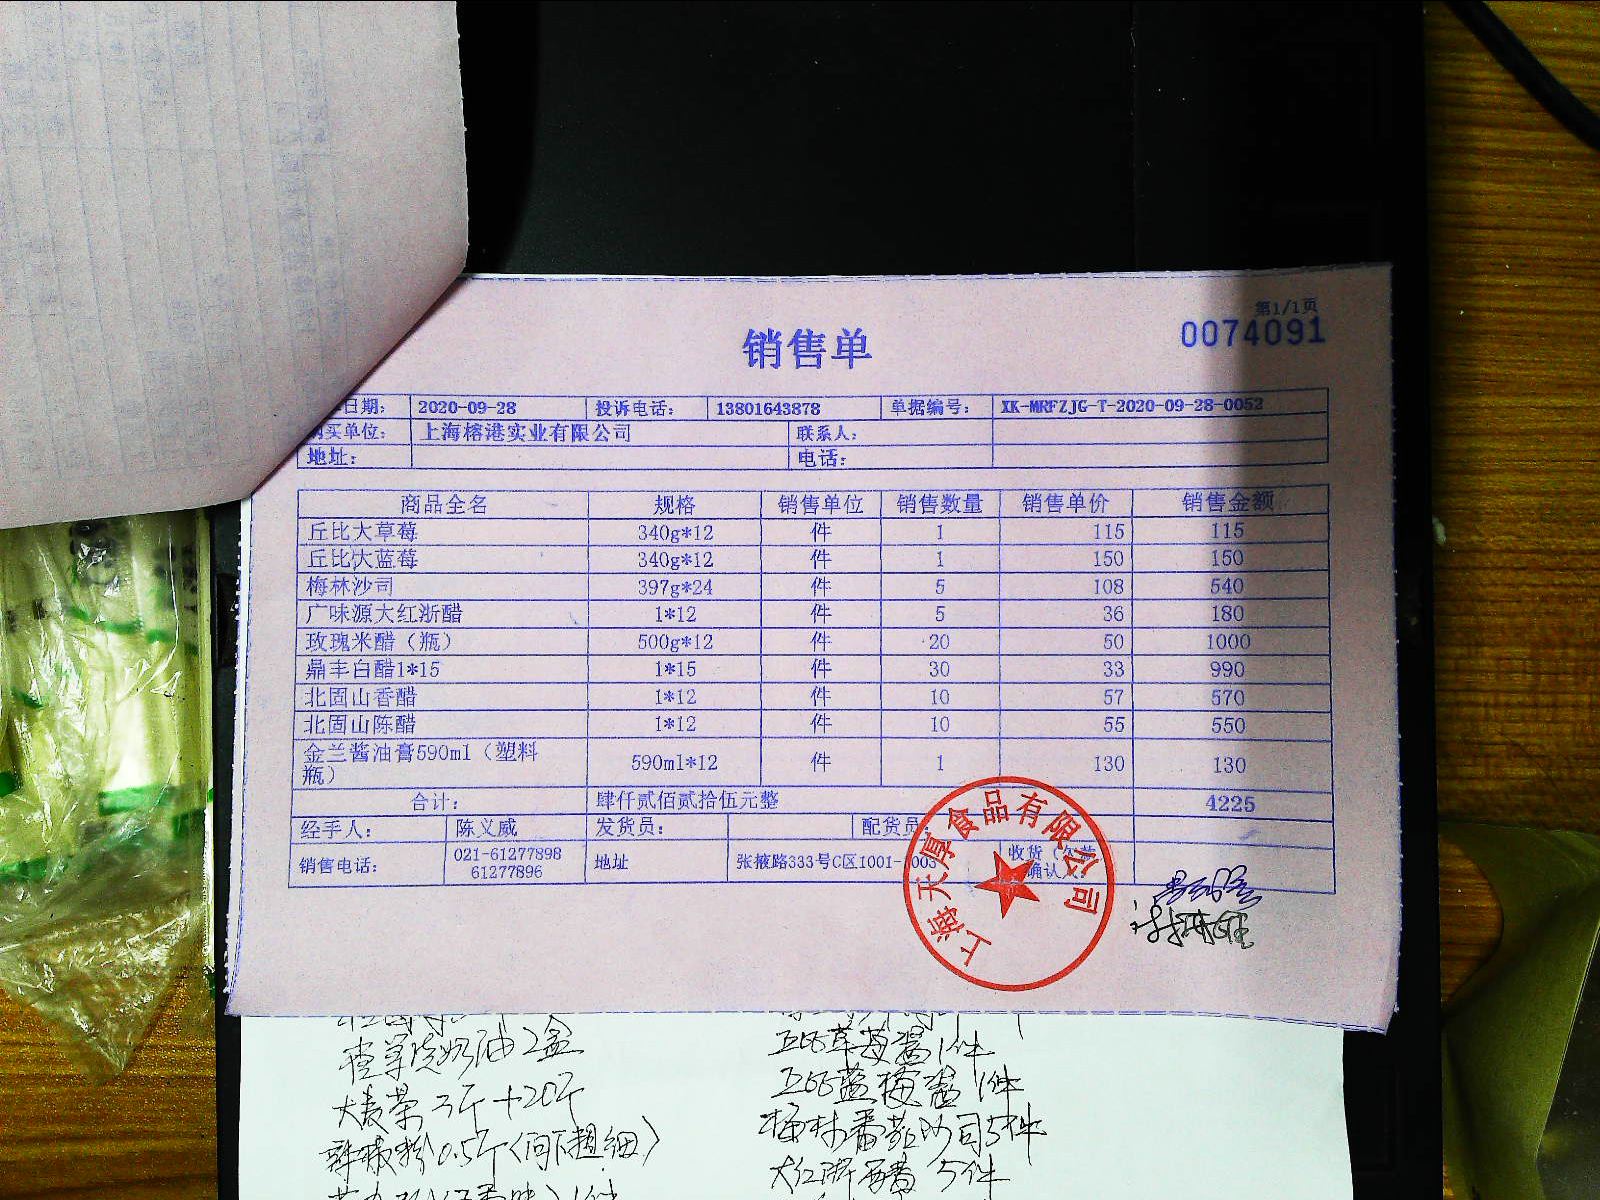 第1/1页
0074091
销售单
日期: 2020-09-28 投诉电话: 13801643878 单据编号: XK-MRFZJG-T-2020-09-28-0052
购买单位: 上海榕港实业有限公司 联系人:
地址: 电话:
商品全名 规格 销售单位 销售数量 销售单价 销售金额
丘比大草莓 340g*12 件 1 115 115
丘比大蓝莓 340g*12 件 1 150 150
梅林沙司 397g*24 件 5 108 540
广味源大红浙醋 1*12 件 5 36 180
玫瑰米醋（瓶） 500g*12 件 20 50 1000
鼎丰白醋1*15 1*15 件 30 33 990
北固山香醋 1*12 件 10 57 570
北固山陈醋 1*12 件 10 55 550
金兰酱油膏590ml（塑料
瓶） 590ml*12 件 1 130 130
合计: 肆仟贰佰贰拾伍元整 4225
经手人: 陈义威 发货员: 配货员:
销售电话: 021-61277898 地址 张掖路333号C区1001-1003 收货（欠款
61277896 确认人）:
上海天享食品有限公司
奶油2盒
丘比草莓酱1件
丘比蓝莓酱1件
大麦茶3斤+20斤
梅林番茄沙司5件
辣椒粉0.5斤
大红浙醋5件